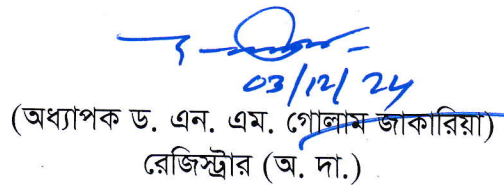 03/12/24
(অধ্যাপক ড. এন. এম. গোলাম জাকারিয়া)
রেজিস্ট্রার (অ. দা.)